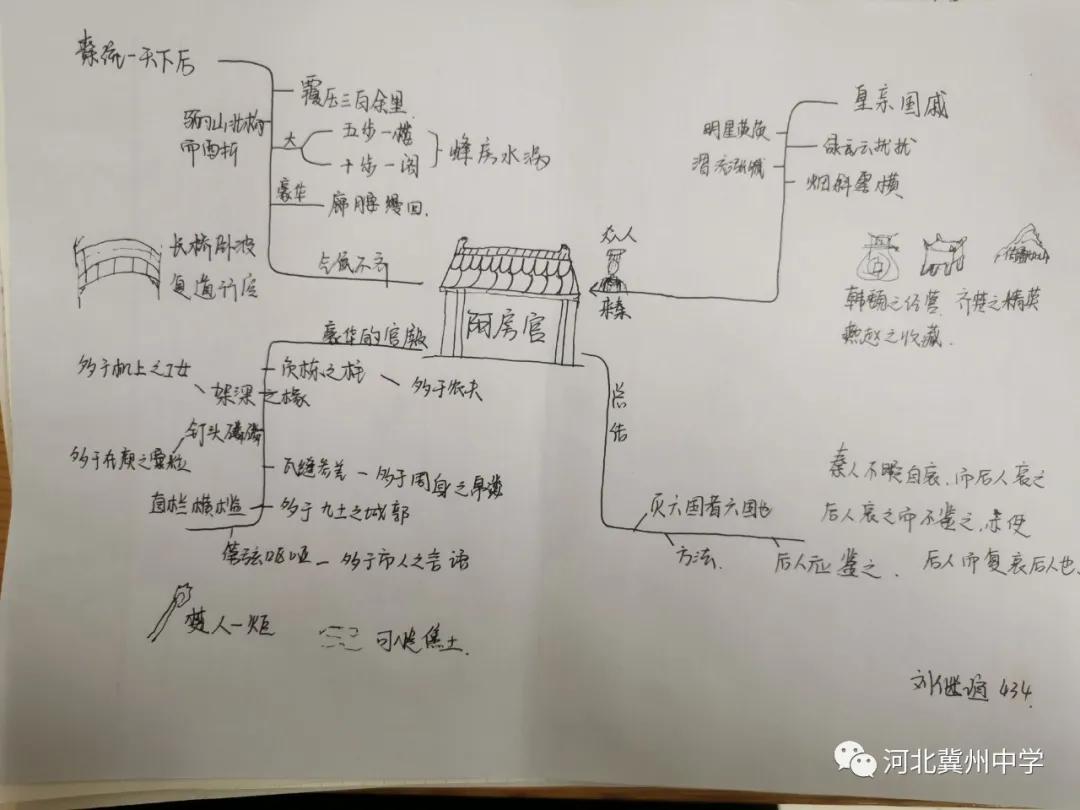 秦统一天下后
覆压三百余里
骊山北构
而西折
大
五步一楼
十步一阁
蜂房水涡
豪华
廊腰缦回.
长桥卧波
复道行空
气候不齐
皇亲国戚
明星荧荧
绿云扰扰
渭流涨腻
烟斜雾横
众人
来秦
韩赵之经营. 齐楚之精英
燕赵之收藏.
阿房宫
豪华的宫殿
多于机上之工女
负栋之柱
多于农夫
架梁之椽
钉头磷磷
多于在庾之粟粒
瓦缝参差
多于周身之帛缕
直栏横槛
多于九土之城郭
管弦呕哑
多于市人之言语
楚人一炬
可怜焦土.
总
结
灭六国者六国也
方法.
后人应鉴之.
秦人不暇自哀,而后人哀之
后人哀之而不鉴之,亦使
后人而复哀后人也.
434.
河北冀州中学